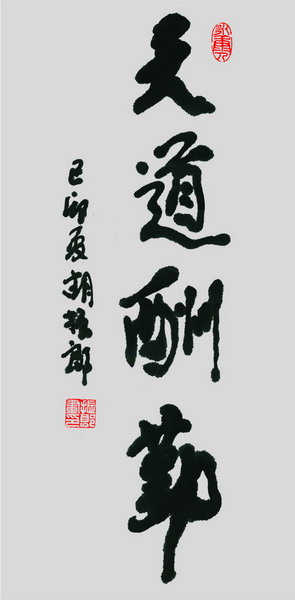 天道酬勤
己卯夏胡振郎